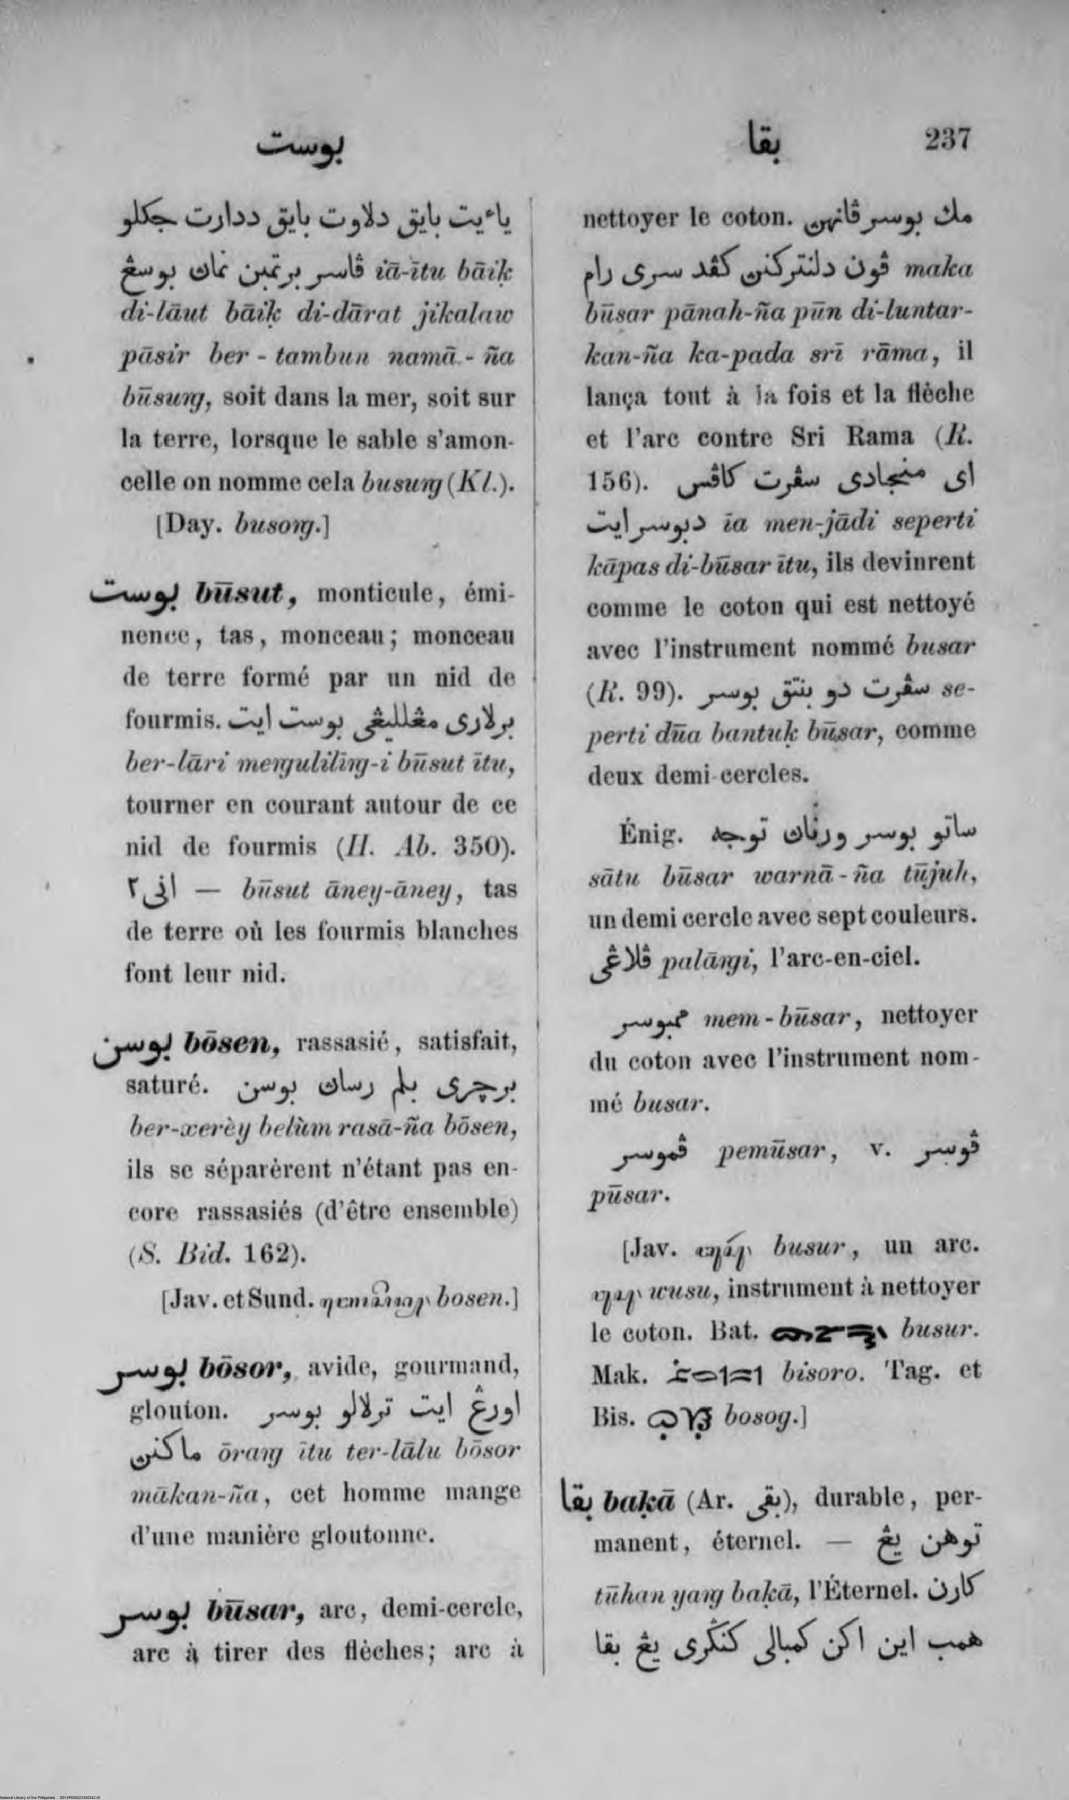 بوست
بقا
237
ياءيت بايق دلاوت بايق ددارت جكلو
ڤاسر برتمبن نمان بوسڠ iā-ītu bāiḳ
di-lāut bāiḳ di-dārat jikalaw
pāsir ber-tambun namā-ña
būsuŋg, soit dans la mer, soit sur
la terre, lorsque le sable s'amon-
celle on nomme cela busuŋg (Kl.).
[Day. busoŋg.]
بوست būsut, monticule, émi-
nence, tas, monceau; monceau
de terre formé par un nid de
fourmis. برلاري مڠلليڠي بوست ايت
ber-lāri meŋguliliŋg-i būsut ītu,
tourner en courant autour de ce
nid de fourmis (H. Ab. 350).
اني٢ — būsut āney-āney, tas
de terre où les fourmis blanches
font leur nid.
بوسن bōsen, rassasié, satisfait,
saturé. برچري بلم رسان بوسن
ber-xerèy belùm rasā-ña bōsen,
ils se séparèrent n'étant pas en-
core rassasiés (d'être ensemble)
(S. Bid. 162).
[Jav. et Sund. bosen.]
بوسر bōsor, avide, gourmand,
glouton. اورڠ ايت ترلالو بوسر
ماكنن ōraŋg ītu ter-lālu bōsor
mākan-ña, cet homme mange
d'une manière gloutonne.
بوسر būsar, arc, demi-cercle,
arc à tirer des flèches; arc à
nettoyer le coton. مك بوسر ڤانهن
ڤون دلنتركنن كڤد سري رام maka
būsar pānah-ña pūn di-luntar-
kan-ña ka-pada srī rāma, il
lança tout à la fois et la flèche
et l'arc contre Sri Rama (R.
156). اي منجادي سڤرت كاڤس
دبوسر ايت īa men-jādi seperti
kāpas di-būsar ītu, ils devinrent
comme le coton qui est nettoyé
avec l'instrument nommé busar
(R. 99). سڤرت دو بنتق بوسر se-
perti dūa bantuḳ būsar, comme
deux demi-cercles.
Énig. ساتو بوسر ورنان توجه
sātu būsar warnā-ña tūjuh,
un demi cercle avec sept couleurs.
ڤلاڠي palāŋgi, l'arc-en-ciel.
ممبوسر mem-būsar, nettoyer
du coton avec l'instrument nom-
mé busar.
ڤموسر pemūsar, v. ڤوسر
pūsar.
[Jav. busur, un arc.
wusu, instrument à nettoyer
le coton. Bat. busur.
Mak. bisoro. Tag. et
Bis. bosog.]
بقا baḳā (Ar. بقى), durable, per-
manent, éternel. — توهن يڠ
tūhan yaŋg baḳā, l'Éternel. كارن
همب اين اكن كمبالي كنڬري يڠ بقا